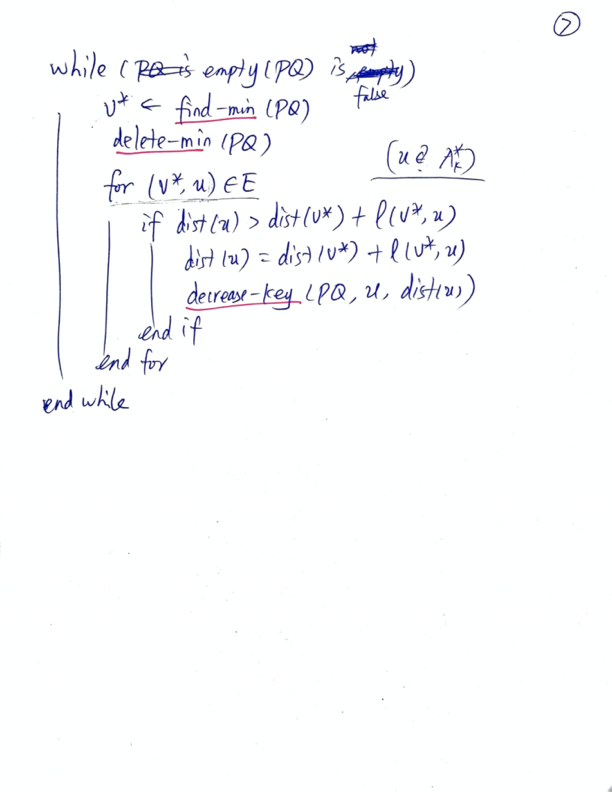 7
while (PQ is empty(PQ) is not empty) false
v* ← find-min (PQ)
delete-min (PQ)
for (v*, u) ∈ E
if dist(u) > dist(v*) + l(v*, u)
dist(u) = dist(v*) + l(v*, u)
decrease-key (PQ, u, dist(u))
end if
end for
end while